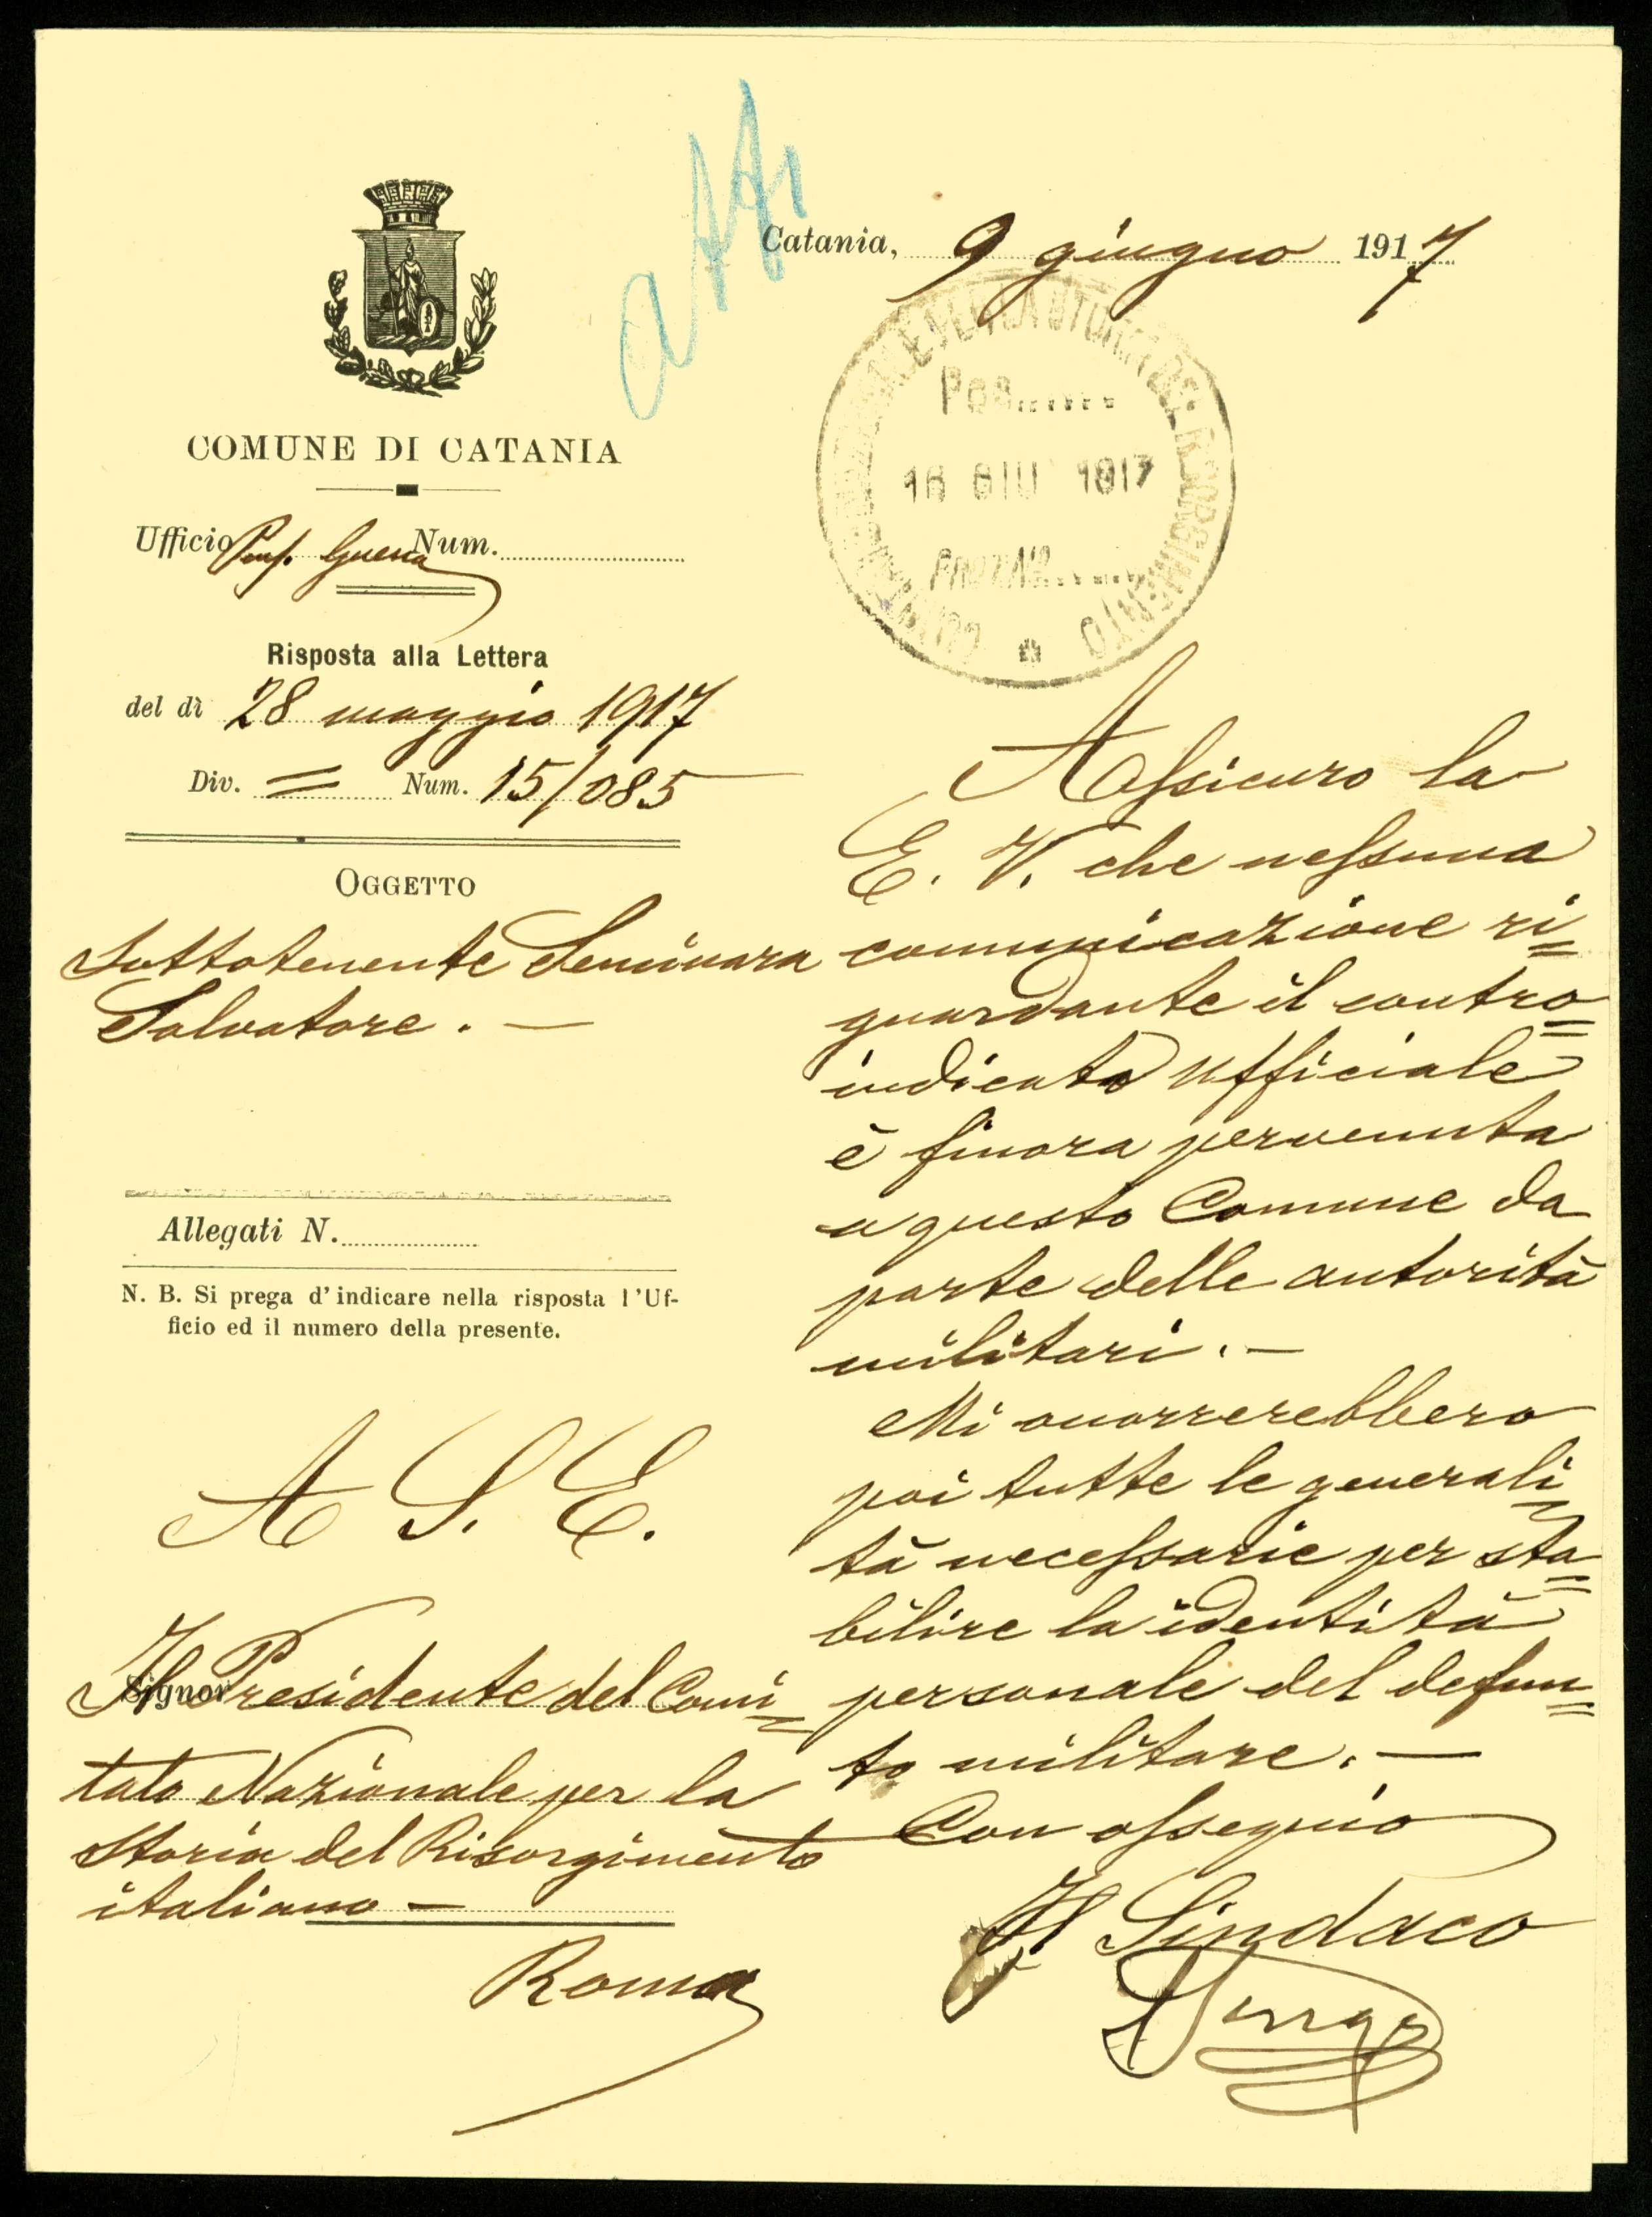 atti
Catania, 9 giugno 1917
COMUNE DI CATANIA
Ufficio Pens. Guerra Num.
Risposta alla Lettera
del dì 28 maggio 1917
Div. = Num. 15/085
OGGETTO
Sottotenente Seminara
Salvatore. —
Allegati N.
N. B. Si prega d'indicare nella risposta l'Uf-
ficio ed il numero della presente.
A S. E.
Signor
Il Presidente del Comi=
tato Nazionale per la
Storia del Risorgimento
italiano —
Roma
Pos......
16 GIU 1917
PROT. N°......
RISORGIMENTO
Assicuro la
E. V. che nessuna
comunicazione ri=
guardante il contro=
indicato ufficiale
è finora pervenuta
a questo Comune da
parte delle autorità
militari. —
Mi occorrerebbero
poi tutte le generali=
tà necessarie per sta=
bilire la identità
personale del defun=
to militare. —
Con ossequio
Il Sindaco